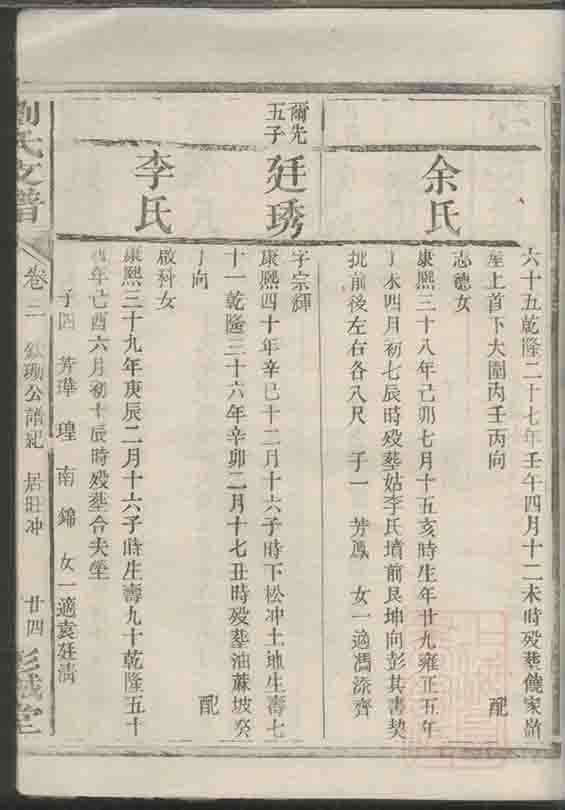 六十五乾隆二十七年壬午四月十二未時殁塟饒家
塋上首下大圍丙壬丙向 配
余氏
志德女
康熙三十八年己卯七月十五亥時生年廿九雍正五年
丁未四月初七辰時殁塟姑李氏墳前艮坤向彭其書契
批前後左右各八尺 子一 芳鳳 女一適馮添齊
爾先
五子
廷琇
字宗輝
康熙四十年辛巳十二月十六子時下松冲土地生壽七
十一乾隆三十六年辛卯二月十七丑時殁塟油蔴坡癸
丁向 配
李氏
啟科女
康熙三十九年庚辰二月十六子時生壽九十乾隆五十
四年己酉六月初十辰時殁塟合夫塋
子四 芳璍 瑝 南 錦 女一適袁廷清
劉氏支譜 卷二 公譜紀 居旺冲 廿四 彭城堂